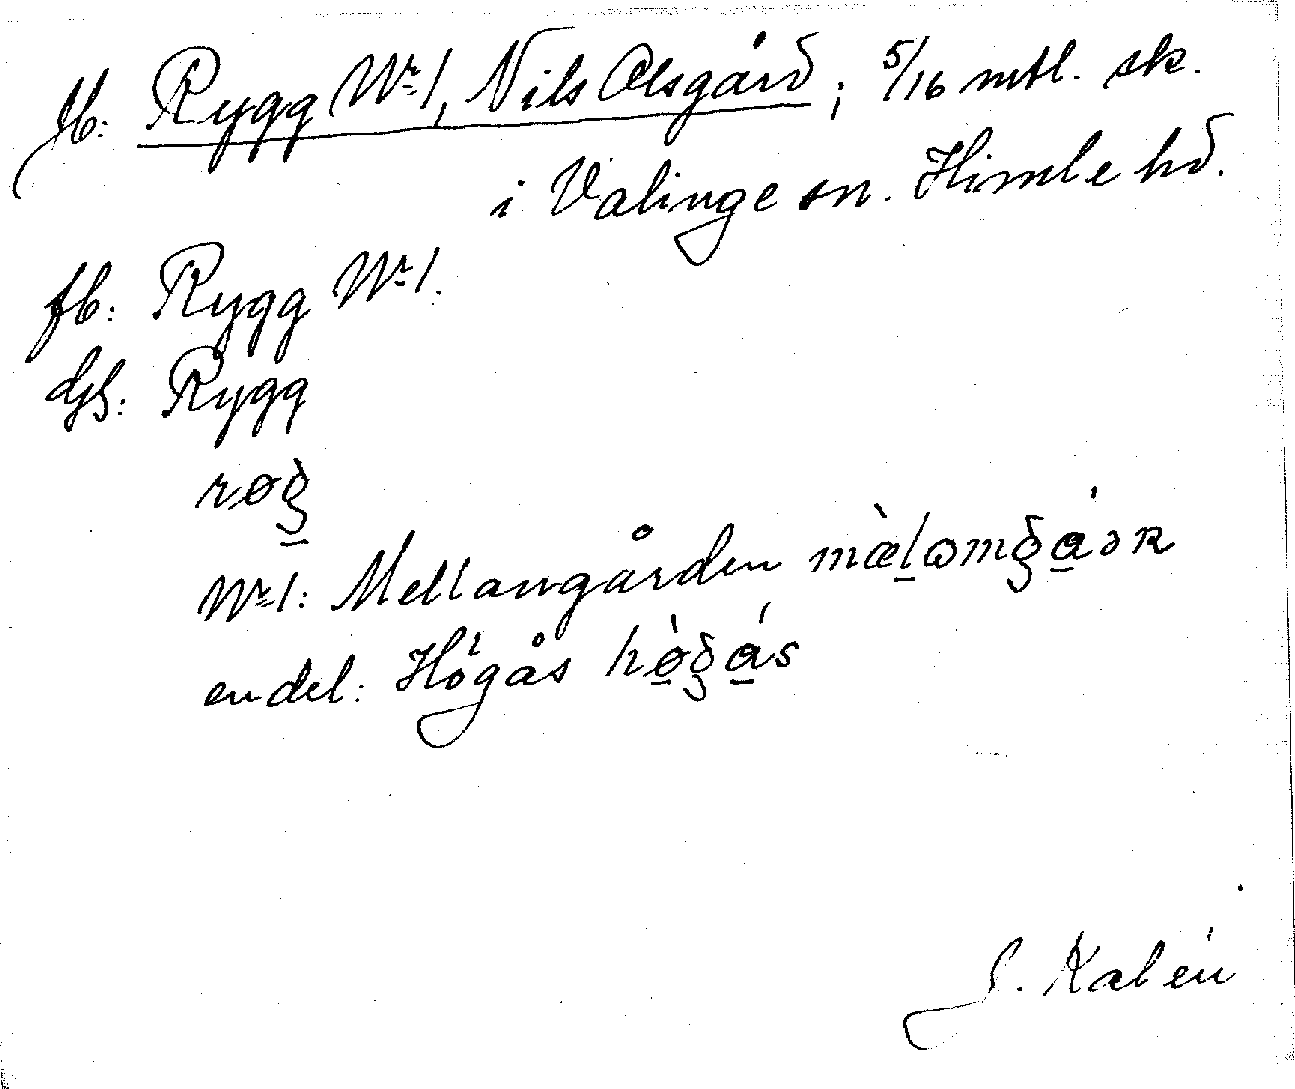 Jb: Rygg Nr 1, Nils Olsgård; 5/16 mtl. sk.
i Valinge sn. Himle hd.
fb: Rygg Nr 1.
dgs: Rygg
røg̲
Nr 1: Mellangården
en del: Högås hø̲̀gá̲s
J. Kalén